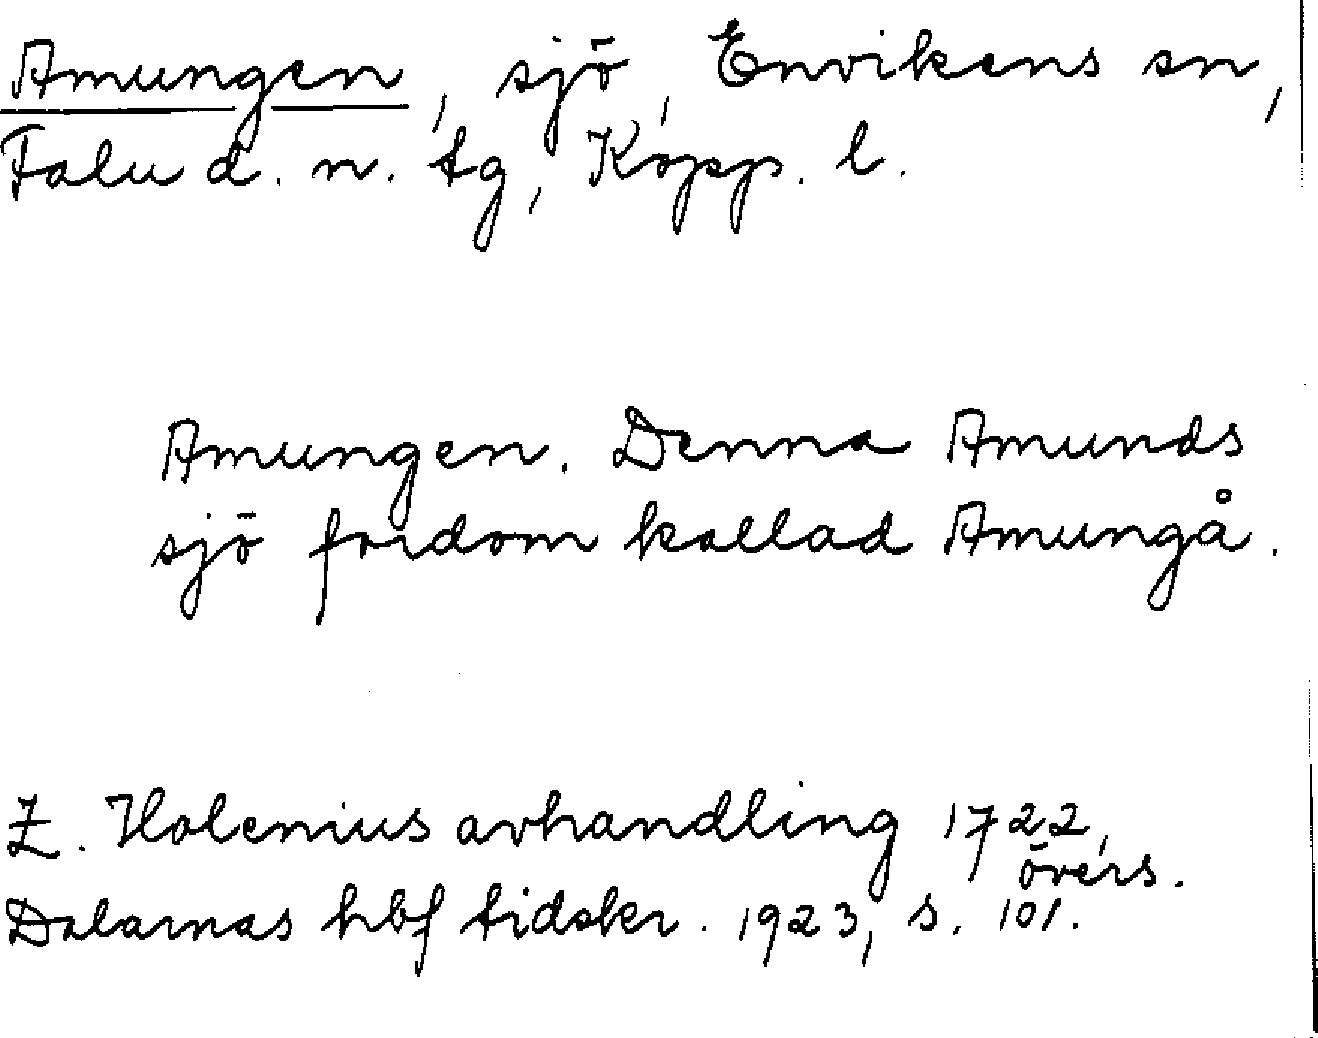 Amungen, sjö, Envikens sn,
Falu d. n. tg, Kopp. l.
Amungen. Denna Amunds
sjö fordom kallad Amungå.
Z. Holenius avhandling 1722,
övers.
Dalarnas hbf tidskr. 1923, s. 101.